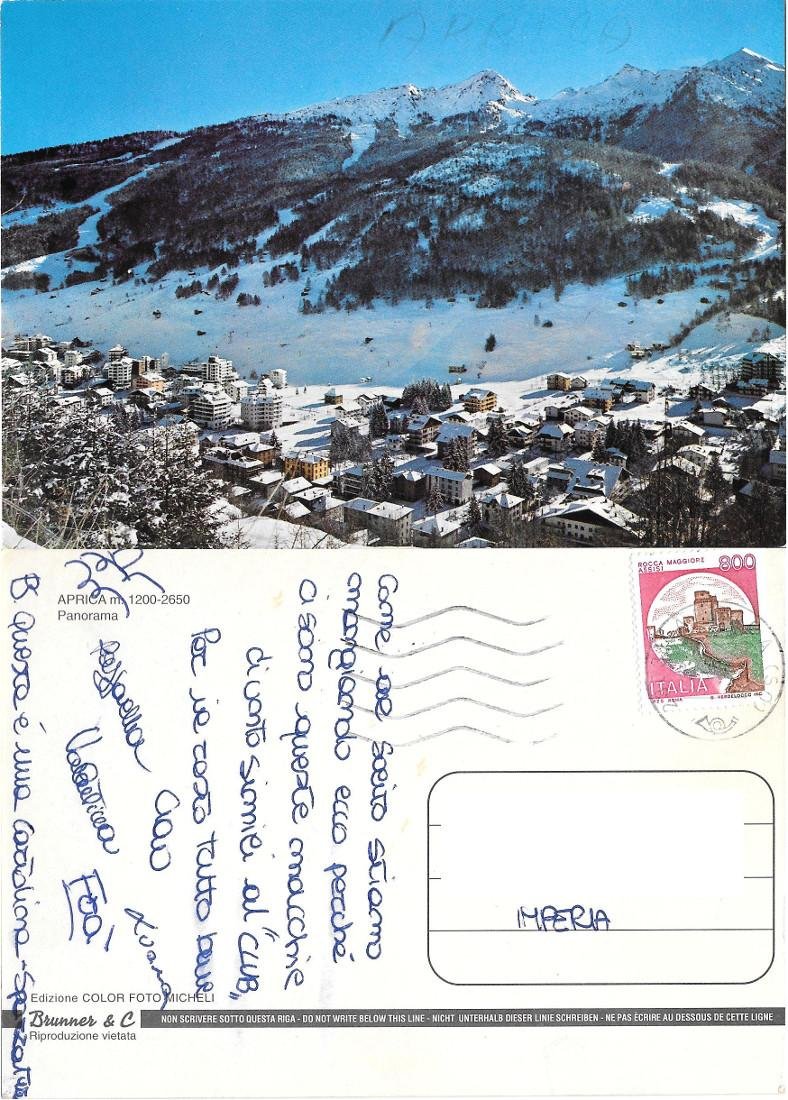 APRICA
APRICA m. 1200-2650
Panorama
ROCCA MAGGIORE 800
ASSISI
ITALIA
Come al solito stiamo
mangiando ecco perché
ci sono queste macchie
di unto simili al "CLUB"
Per il resto tutto bene
Ciao Luana
Valentina
Foà
B Questa è una cartolina - Spazzatura
IMPERIA
Edizione COLOR FOTO MICHELI
Brunner & C
NON SCRIVERE SOTTO QUESTA RIGA - DO NOT WRITE BELOW THIS LINE - NICHT UNTERHALB DIESER LINIE SCHREIBEN - NE PAS ÉCRIRE AU DESSOUS DE CETTE LIGNE
Riproduzione vietata